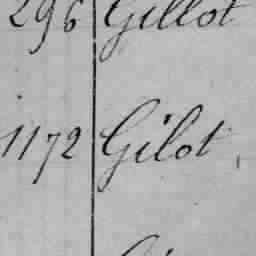 296 Gillot
1172 Gilot